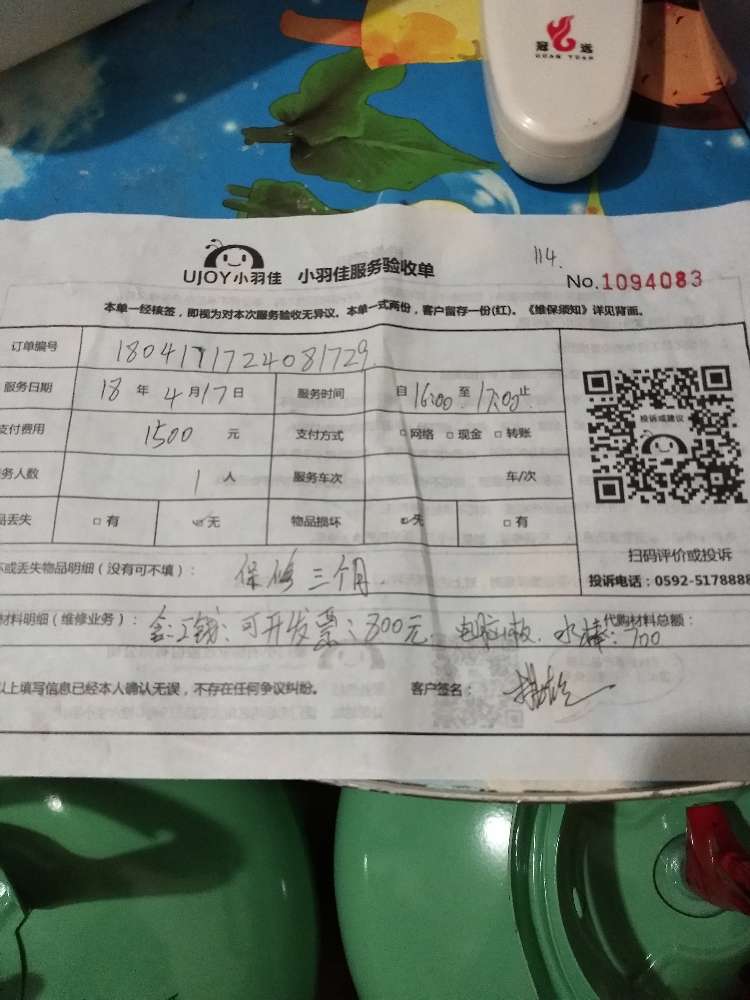 冠远
GUAN YUAN
UJOY小羽佳 小羽佳服务验收单
114.
No.1094083
本单一经核签，即视为对本次服务验收无异议。本单一式两份，客户留存一份(红)。《维保须知》详见背面。
订单编号
服务日期 18 年 4 月 17 日 服务时间 自 16:00 至 17:00 止
支付费用 1500 元 支付方式 □网络 □现金 □转账
务人数 1 人 服务车次 车/次
品丢失 □有 ☑无 物品损坏 ☑无 □有
投诉或建议
扫码评价或投诉
投诉电话：0592-5178888
坏或丢失物品明细（没有可不填）： 保修三个月.
材料明细（维修业务）： 工钱：可开发票：800元. 电脑板. 水棒：700 代购材料总额：
以上填写信息已经本人确认无误，不存在任何争议纠纷。 客户签名：